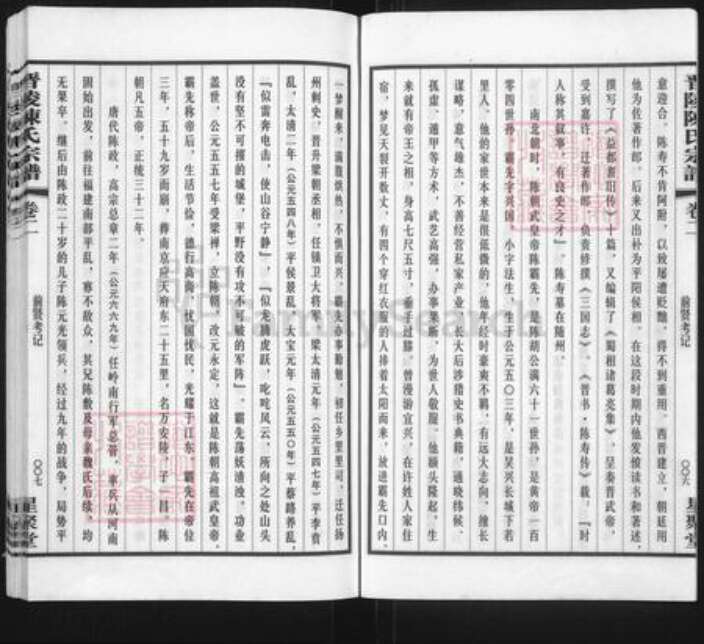 晋陵陳氏宗譜
卷二
前贤考记
〇〇六
星聚堂
意迎合。陈寿不肯阿附,以致屡遭贬黜,得不到重用。西晋建立,朝廷用
他为佐著作郎,后来又出补为平阳侯相。在这段时期内他发愤读书和著述,
撰写了《益都耆旧传》十篇,又编辑了《蜀相诸葛亮集》,呈奏晋武帝,
受到嘉许,迁著作郎,负责修撰《三国志》。《晋书·陈寿传》载:『时
人称其叙事,有良史之才』。陈寿墓在随州。
南北朝时,陈朝武皇帝陈霸先,是陈胡公满六十一世孙,是黄帝一百
零四世孙。霸先字兴国,小字法生,生于公元五〇三年,是吴兴长城下若
里人。他的家世本来是很低微的,他年经时豪爽不羁,有远大志向,擅长
谋略,意气雄杰,不善经营私家产业。长大后涉猎史书典籍,通晓纬候、
孤虚、遁甲等方术,武艺高强,办事果断,为世人敬服。他额头隆起,生
来就有帝王之相,身高七尺五寸,垂手过膝。曾漫游宜兴,在许姓人家住
宿,梦见天裂开数丈,有四个穿红衣服的人捧着太阳而来,放进霸先口内。
一梦醒来,满腹炽热,不惧而兴。霸先办事勤勉,初任乡里里司,迁任扬
州刺史,晋升梁朝丞相,任镇卫大将军。梁太清元年(公元五四七年)平李贲
乱,太清二年(公元五四八年)平侯景乱,大宝元年(公元五五〇年)平蔡路养乱,
『似雷奔电击,使山谷宁静』,『似龙腾虎跃,叱咤风云,所向之处山头
没有坚不可摧的城堡,平野没有攻不可破的军阵』。霸先荡妖清浊,功业
盖世,公元五五七年受梁禅,立陈朝,改元永定,这就是陈朝高祖武皇帝。
霸先称帝后,生活节俭,德行高尚,忧国忧民,光耀于江东。霸先在帝位
三年,五十九岁而崩,葬南京应天府东二十五里,名万安陵。子一昌。陈
朝凡五帝,正统三十二年。
唐代陈政,高宗总章二年(公元六六九年)任岭南行军总管,率兵从河南
固始出发,前往福建南部平乱,寡不敌众,其兄陈敷及母亲魏氏后续,均
无果卒。继后由陈政二十岁的儿子陈元光领兵,经过九年的战争,局势平
晋陵陳氏宗譜
卷二
前贤考记
〇〇七
星聚堂
FamilySearch